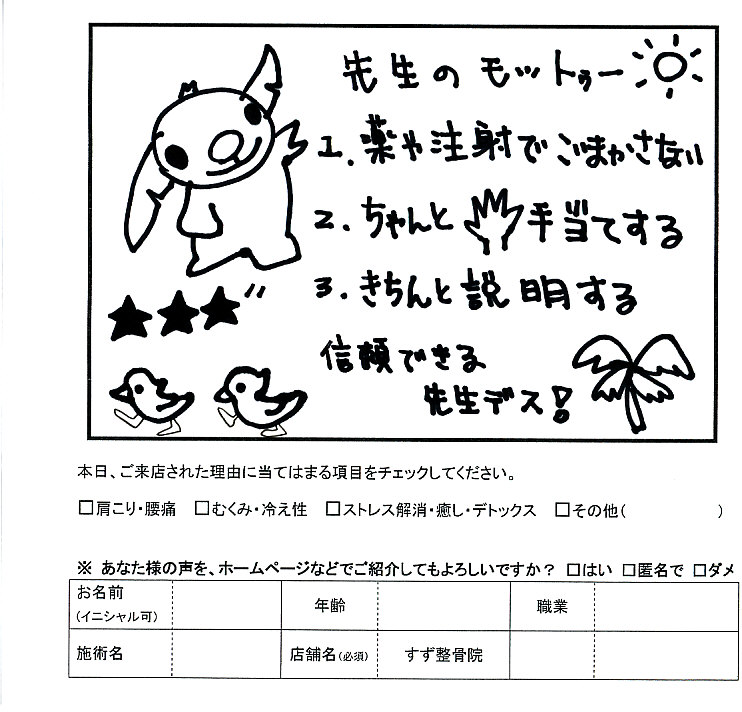 先生の モットゥー
1. 薬や注射でごまかさない
2. ちゃんと 手当てする
3. きちんと説明する
信頼できる
先生デス!
本日、ご来店された理由に当てはまる項目をチェックしてください。
□肩こり・腰痛 □むくみ・冷え性 □ストレス解消・癒し・デトックス □その他( )
※ あなた様の声を、ホームページなどでご紹介してもよろしいですか? □はい □匿名で □ダメ
お名前
(イニシャル可)
年齢
職業
施術名
店舗名(必須)
すず整骨院